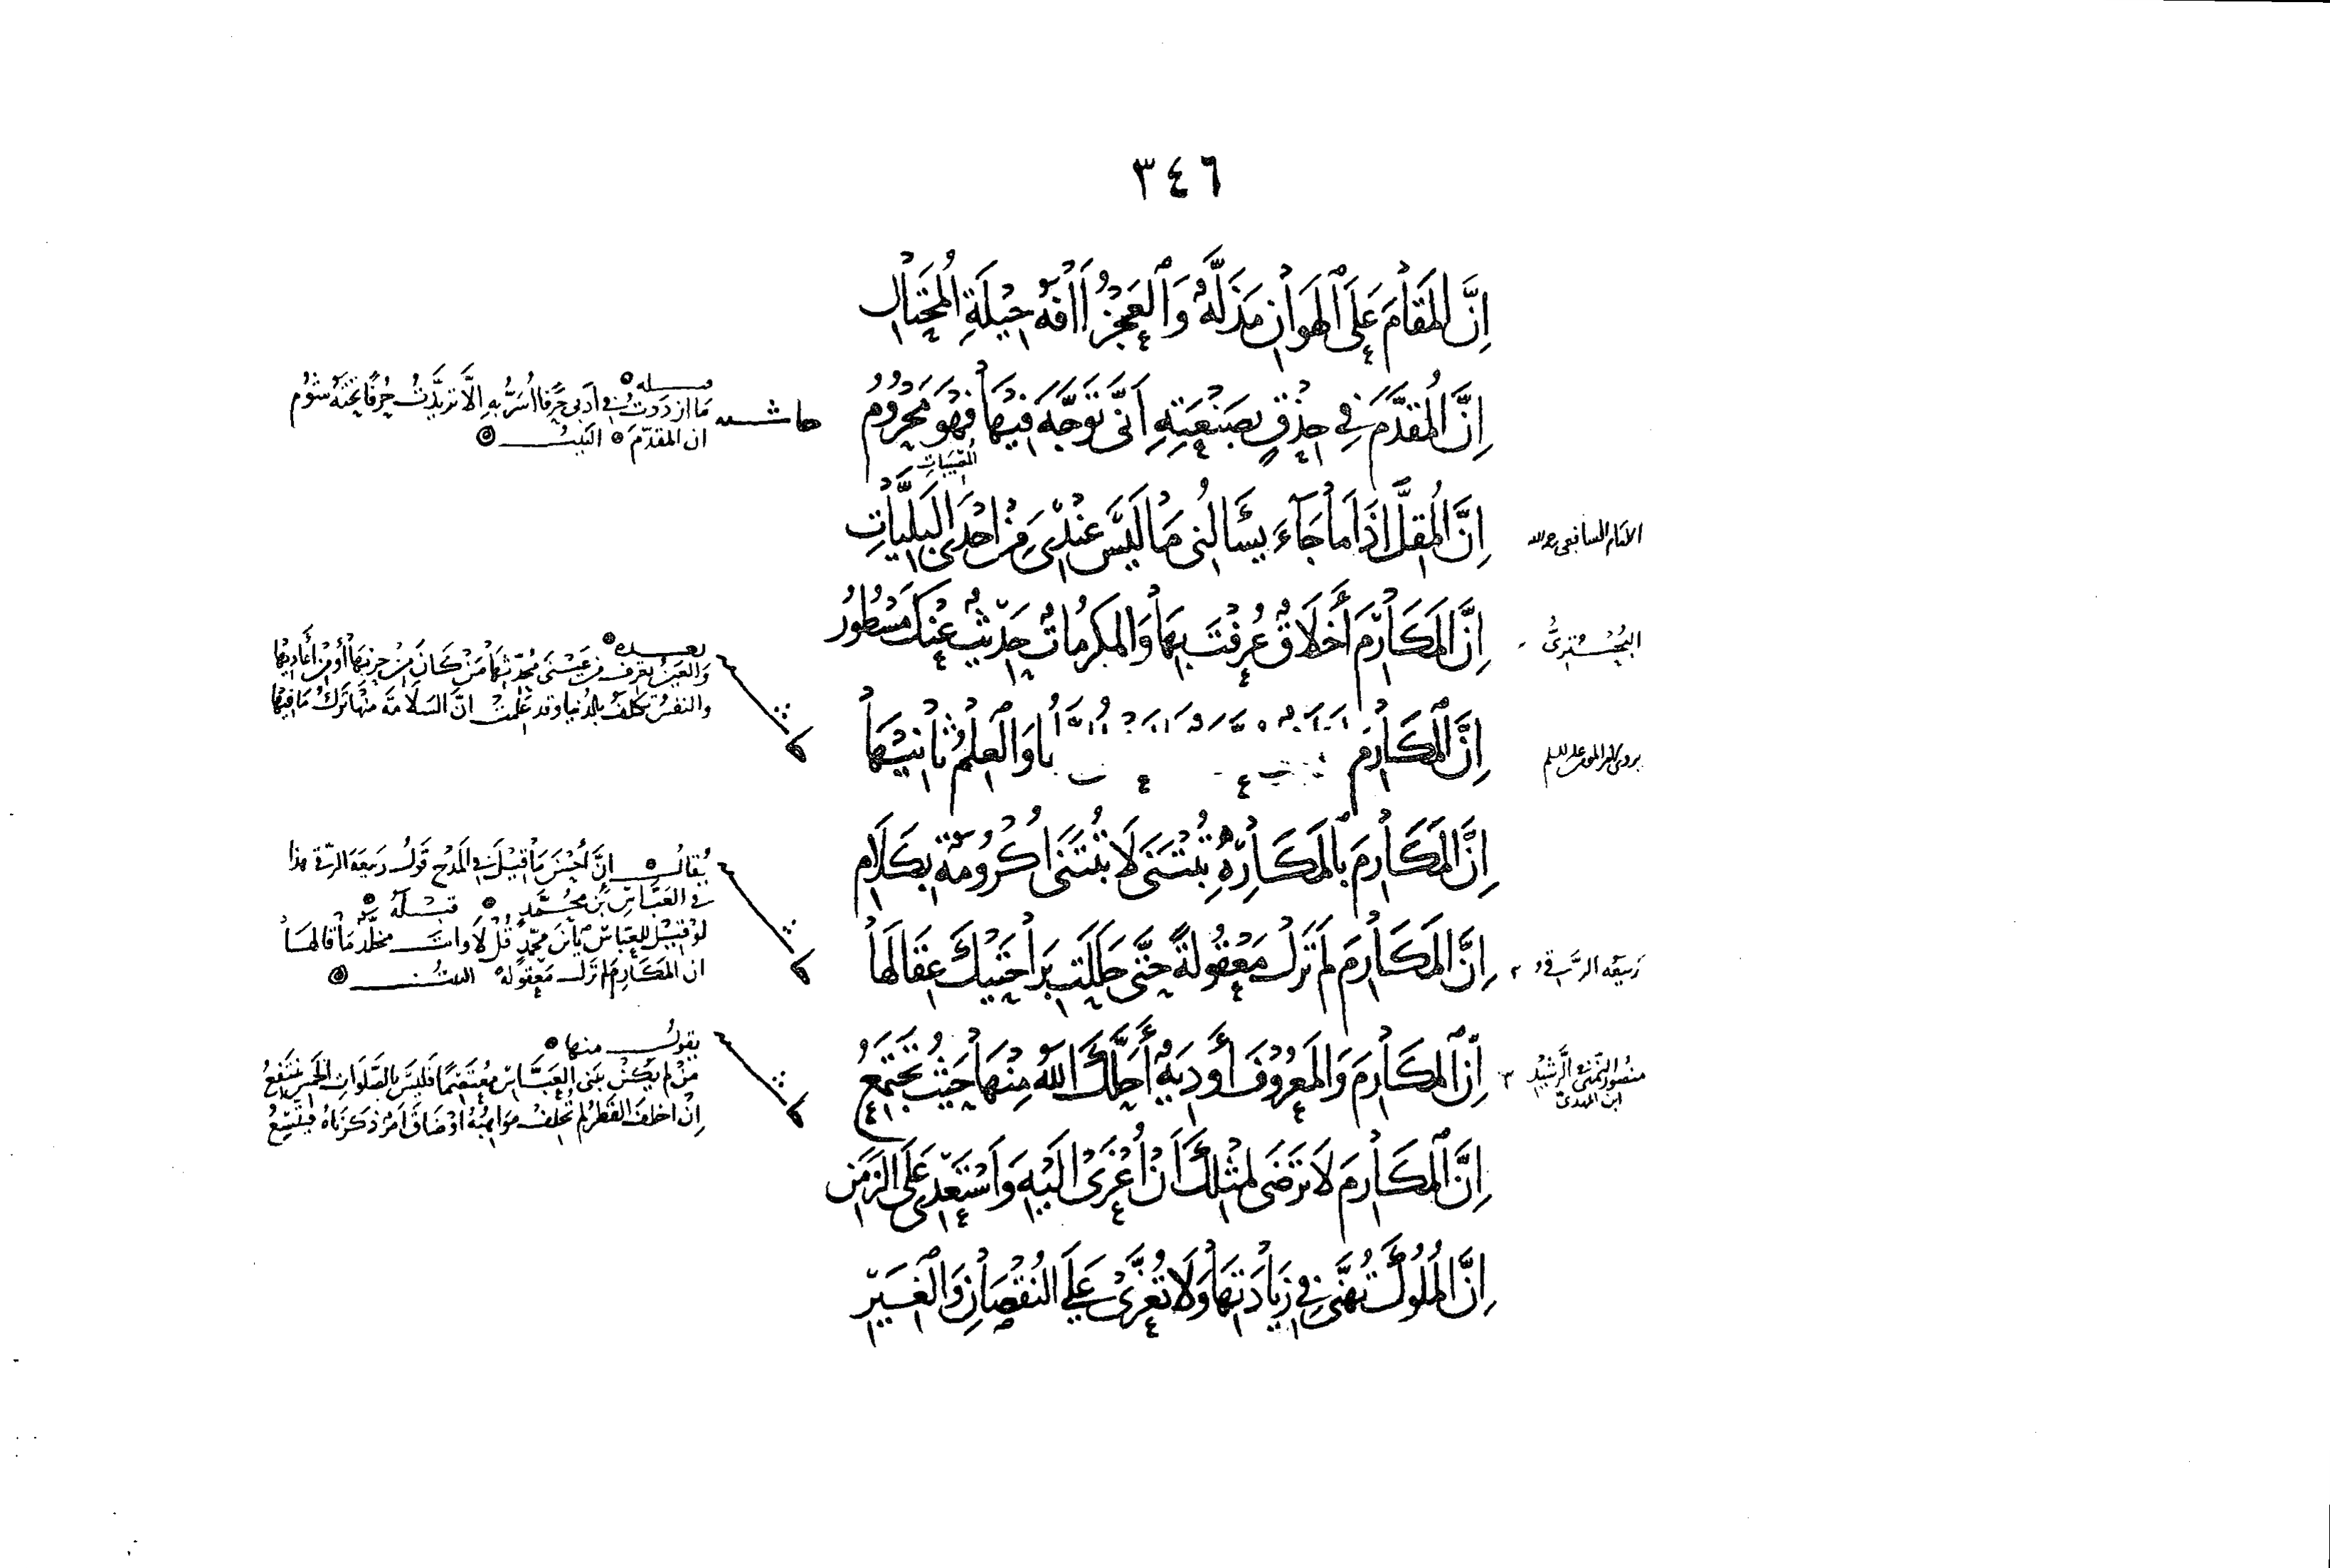 ٣٤٦
إِنَّ المَقَامَ عَلَى الهَوَانِ مَذَلَّةٌ وَالعَجْزُ اافَةُ حِيْلَةِ المُحْتَالِ
إِنَّ المُقَدَّمَ فِي حِذْقٍ بِصَنْعَتِهِ أَنَّى تَوَجَّهَ فِيْهَا فَهْوَ مَحْرُوْمُ
هاشه
قبله
مَا ازددتُ في أدبي حَرفًا أُسَرُّ بِهِ إلَّا تزيَّدتُ حُرفًا تَحْتَهُ شُومُ
ان المقدّمَ البَيتُ
المُصِيبَاتِ
الامام الشافعي رحمه الله
إِنَّ المُقِلَّ إِذَا مَا جَاءَ يَسْأَلُنِي مَا لَيْسَ عِنْدِي مِنْ إِحْدَى البَلِيَّاتِ
البُحْتُرِيُّ
إِنَّ المَكَارِمَ أَخْلَاقٌ عُرِفْتَ بِهَا وَالمَكْرُمَاتُ حَدِيْثٌ عَنْكَ مَسْطُوْرُ
إِنَّ المَكَارِمَ وَالعِلْمُ ثَانِيْهَا
بعده
وَالعَيْنُ تَعرِفُ مِن عَيْنَي مُحَدِّثِهَا مَنْ كَانَ مِنْ حِزبِهَا أو مِنْ أَعَادِيهَا
والنفسُ تكلفُ بالدُنيا وقد عَلِمَتْ انَّ السَلَامَةَ مِنْهَا تَركُ مَا فِيْهَا
إِنَّ المَكَارِمَ بِالمَكَارِهِ تُبْتَنَى لَا تُبْتَنَى أُكْرُوْمَةٌ بِكَلَامِ
رَبيعه الرَّقي
إِنَّ المَكَارِمَ لَمْ تَزَلْ مَعْقُوْلَةً حَتَّى حَلَلْتَ بِرَاحَتَيْكَ عِقَالَهَا
يُقالُ إنَّ أَحْسَنَ مَا قِيْلَ في المَدْحِ قَولُ رَبيعَة الرَّقي هذا
في العَبَّاسِ بْنِ مُحَمَّدٍ قبْلَهُ
لَوْ قِيْلَ لِلعَبّاسِ يَا بْنَ مُحَمَّدٍ قُلْ لَا وانتَ مخلَّدٌ مَا قَالَهَا
ان المَكَارِمَ لم تَزَل مَعْقُولَةً البيتُ
منصور النَّمَري الرَّشيد
ابن المهدي
إِنَّ المَكَارِمَ وَالمَعْرُوْفَ أَوْدِيَةٌ أَحَلَّكَ اللهُ مِنْهَا حَيْثُ تَجْتَمِعُ
يقولُ منها
مَنْ لم يَكنْ بِبَني العَبَّاسِ مُعتَصِمًا فَلَيسَ بالصَّلَواتِ الخَمسِ يَنتَفِعُ
إنْ اخلفَ القَطرُ لم تُخلِفْ مَوَاهِبُهُ أوْ ضَاقَ أمرٌ ذكَرنَاهُ فيَتَّسِعُ
إِنَّ المَكَارِمَ لَا تَرْضَى لِمِثْلِكَ أَنْ أُعْزَى إِلَيْهِ وَأَسْتَعْدِي عَلَى الزَّمَنِ
إِنَّ المُلُوْكَ تُهَنَّى فِي زِيَادَتِهَا وَلَا تُعَزَّىْ عَلَى النُّقْصَانِ وَالغِيَرِ